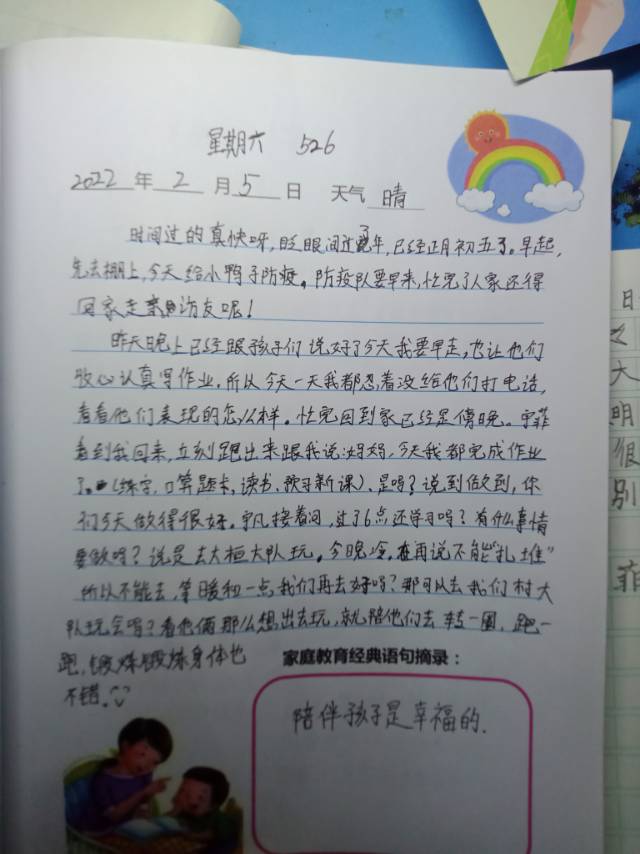 星期六 526
2022年2月5日 天气晴
时间过的真快呀,眨眼间过了年,已经正月初五了。早起,
先去棚上,今天给小鸭子防疫。防疫队要早来,忙完了人家还得
回家走亲访友呢!
昨天晚上已经跟孩子们说好了今天我要早走,也让他们
收心认真写作业,所以今天一天我都忍着没给他们打电话,
看看他们表现的怎么样。忙完回到家已经是傍晚。宇菲
看到我回来,立刻跑出来跟我说:妈妈,今天我都完成作业
了。(练字,口算题卡,读书、预习新课)、是吗?说到做到,你
们今天做得很好。宇凡接着问,过了6点还学习吗?有什么事情
要做吗?说是去大桓大队玩。今晚冷,再说不能“扎堆”
所以不能去,等暖和一点我们再去好吗?那可以去我们村大
队玩会吗?看他俩那么想出去玩,就陪他们去转一圈,跑一
跑,锻炼锻炼身体也
不错。
家庭教育经典语句摘录:
陪伴孩子是幸福的.
日
大
明
很
别
菲